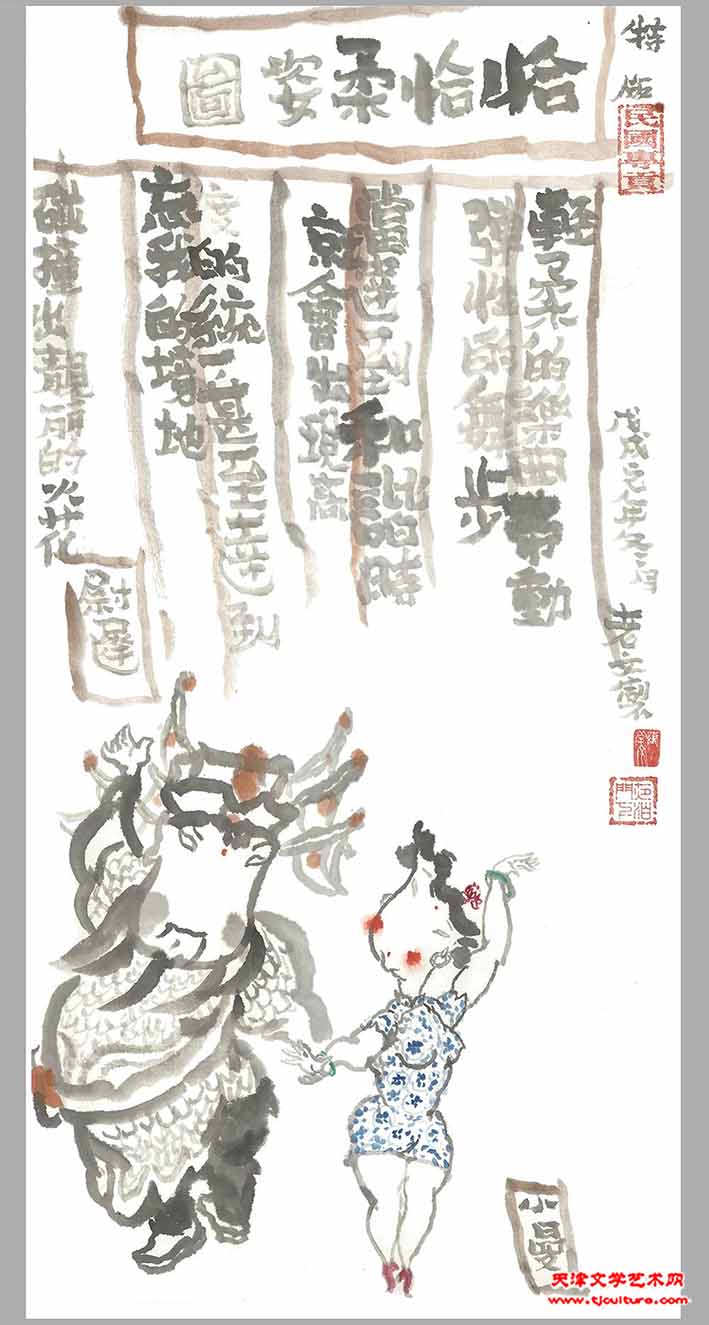 恰恰柔姿圖
輕柔的樂曲帶動
彈性的舞步
當達到和諧時
就會出現高
度的統一甚至達到
忘我的境地
碰撞出靚麗的火花
戊戌元年冬
製
尉遲
小曼
天津文学艺术网
www.tjculture.com